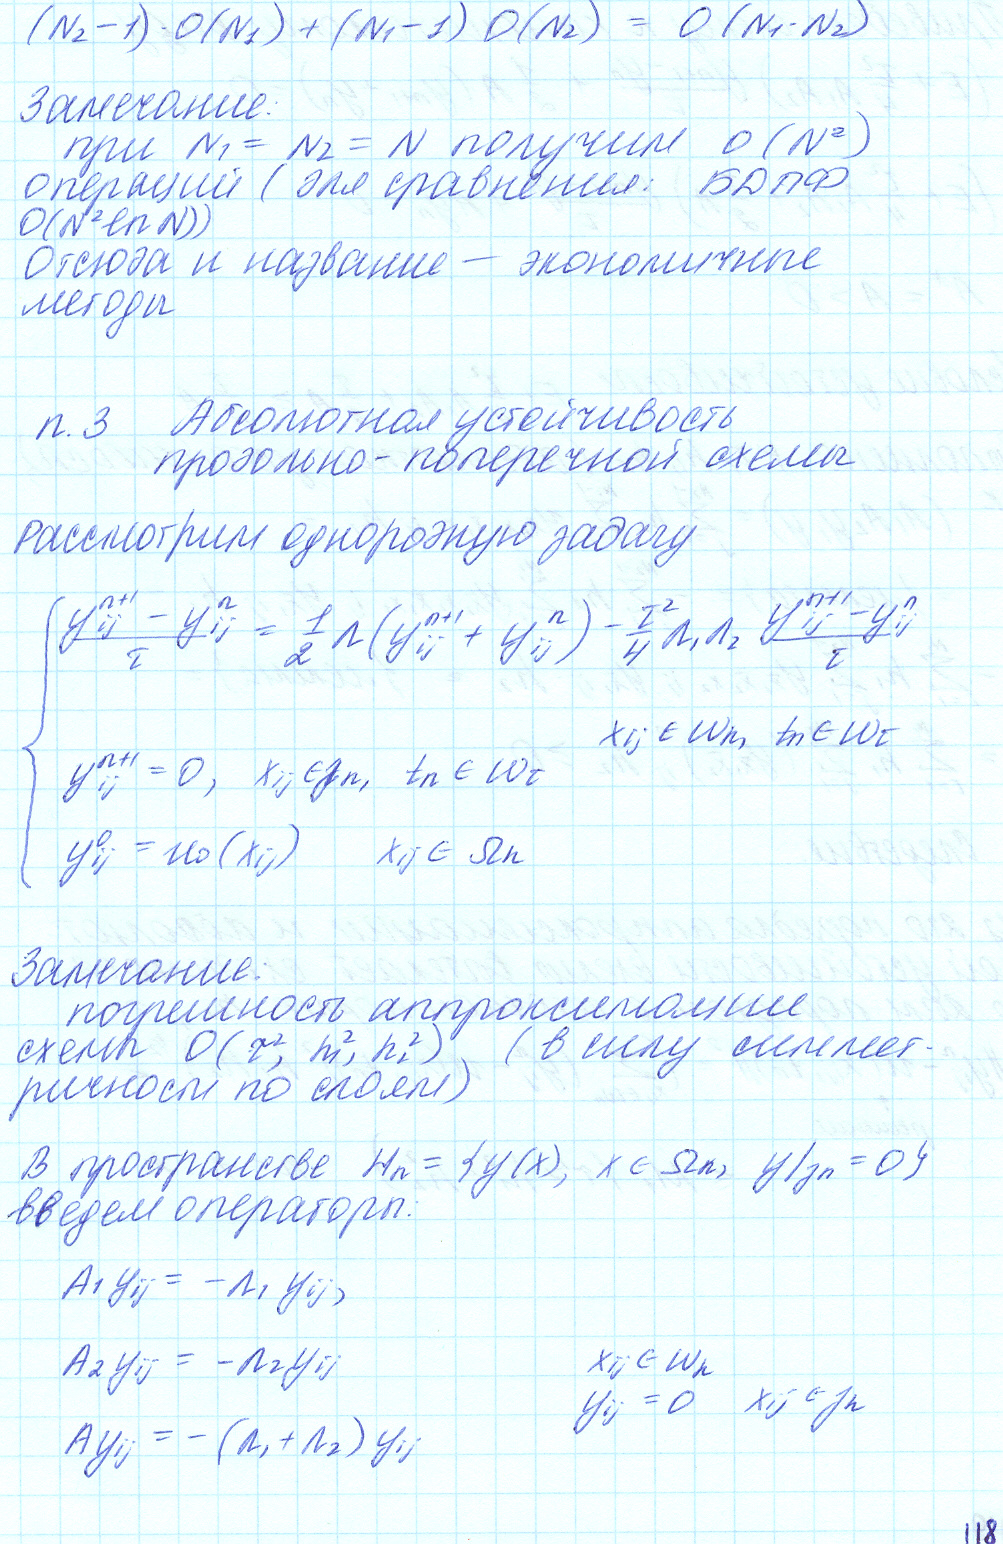 (N₂-1)·O(N₁) + (N₁-1) O(N₂) = O(N₁·N₂)
Замечание:
при N₁ = N₂ = N получим O(N²)
операций (для сравнения: БДПФ
O(N² ln N))
Отсюда и название — экономичные
методы
п.3 Абсолютная устойчивость
продольно-поперечной схемы
Рассмотрим однородную задачу
(yᵢⱼⁿ⁺¹ - yᵢⱼⁿ)/τ = 1/2 Λ(yᵢⱼⁿ⁺¹ + yᵢⱼⁿ) - τ²/4 Λ₁Λ₂ (yᵢⱼⁿ⁺¹ - yᵢⱼⁿ)/τ
xᵢⱼ ∈ ωₕ, tₙ ∈ ωτ
yᵢⱼⁿ⁺¹ = 0, xᵢⱼ ∈ γₕ, tₙ ∈ ωτ
yᵢⱼ⁰ = u₀(xᵢⱼ) xᵢⱼ ∈ Ωₕ
Замечание:
погрешность аппроксимации
схемы O(τ², h₁², h₂²) (в силу симмет-
ричности по слоям)
В пространстве Hₕ = {y(x), x ∈ Ωₕ, y|γₕ = 0}
введем операторы:
A₁yᵢⱼ = -Λ₁yᵢⱼ,
A₂yᵢⱼ = -Λ₂yᵢⱼ xᵢⱼ ∈ ωₕ
yᵢⱼ = 0 xᵢⱼ ∈ γₕ
Ayᵢⱼ = -(Λ₁+Λ₂)yᵢⱼ
118